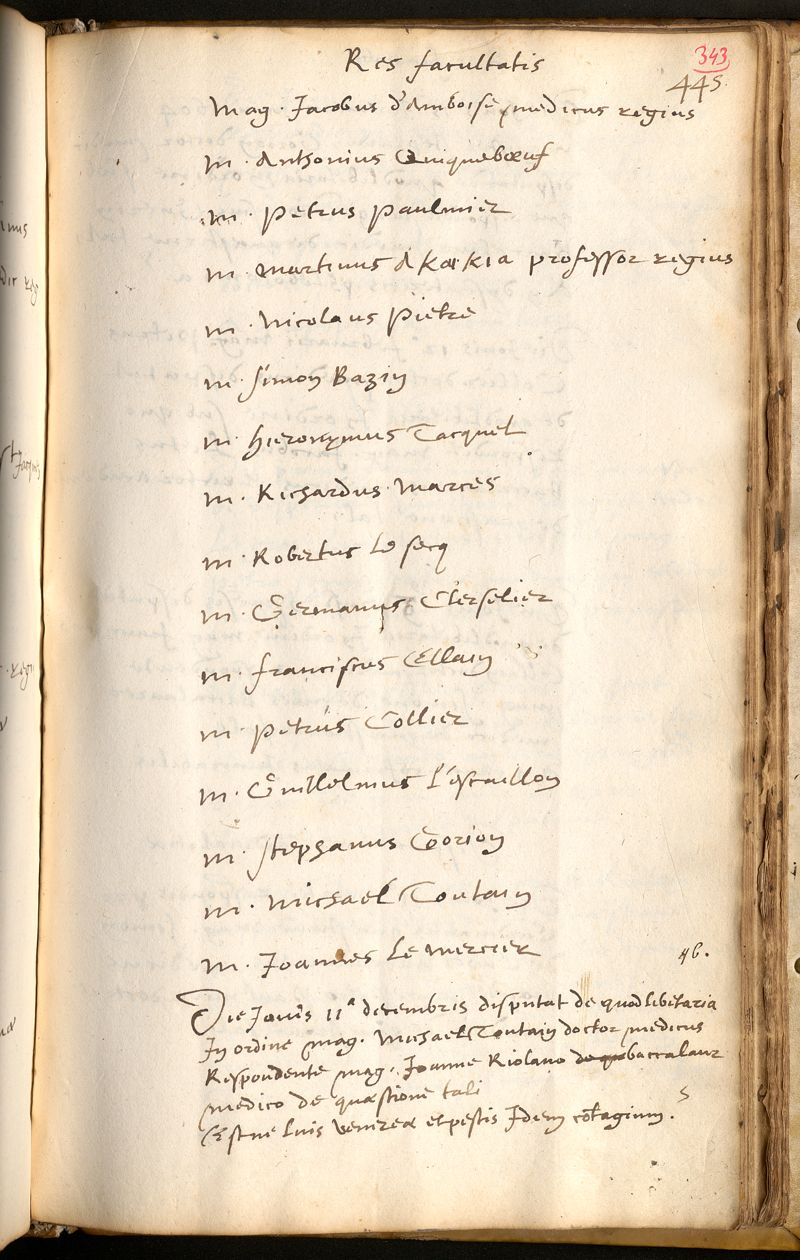 343
Res facultatis
445.
Mag. Jacobus d'Amboise medicus regius
M. Anthonius Quiquebœuf
M. Petrus Paulmier
M. Martinus Akakia professor regius
M. Nicolaus Pietre
M. Simon Bazin
M. Hieronymus Tacquet
M. Richardus Marces
M. Robertus Le secq
M. Germanus Clerselier
M. Franciscus Ellain
M. Petrus Collier
M. Guillelmus L'escaillon
M. Stephanus Gorion
M. Michael Toutain
M. Joannes Le mercier
46.
Die Jovis 11ª decembris disputat de quodlibetaria
In ordine mag. Michael Toutain doctor medicus
Respondente mag. Joanne Riolano baccalaur
medico de quæstione tali
Estne Luis venereæ et pestis Idem cōtagium.